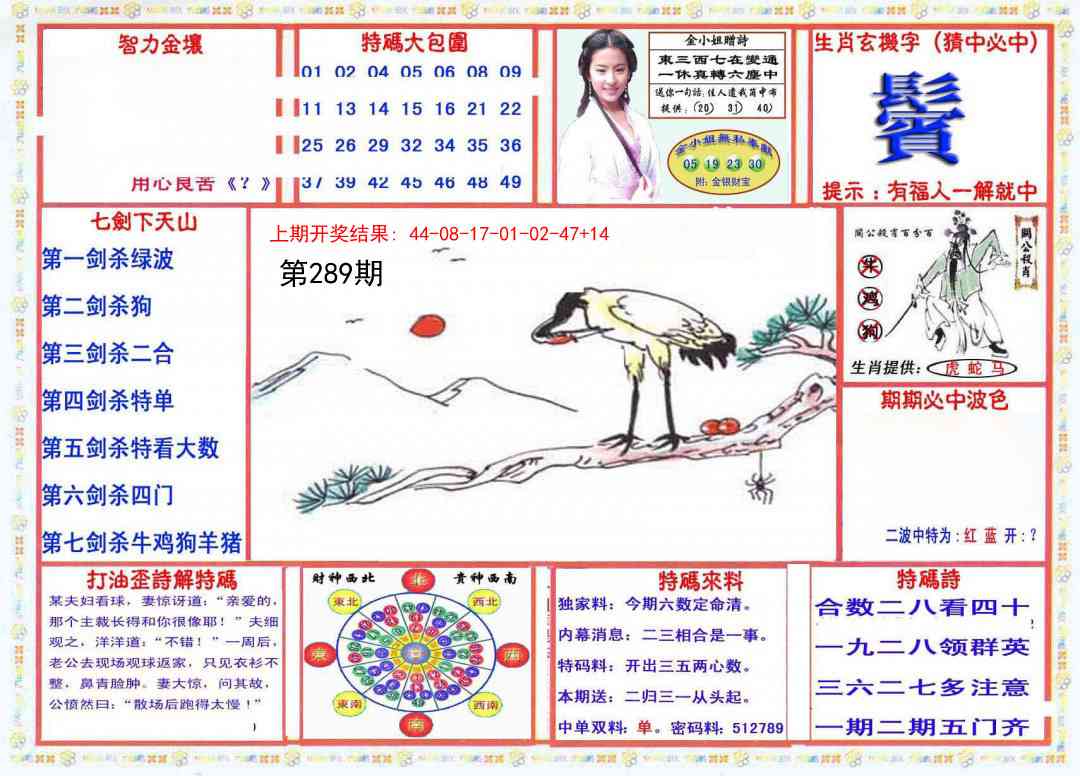 智力金壤
用心良苦《?》
特碼大包圍
01 02 04 05 06 08 09
11 13 14 15 16 21 22
25 26 29 32 34 35 36
37 39 42 45 46 48 49
金小姐贈詩
東三西七在變通
一休真轉六塵中
送你一句話:佳人遺我筒中布
提供:(20) 31) 40)
金小姐無私奉獻
05 19 23 30
附:金银财宝
生肖玄機字(猜中必中)
鬢
提示:有福人一解就中
七劍下天山
第一剑杀绿波
第二剑杀狗
第三剑杀二合
第四剑杀特单
第五剑杀特看大数
第六剑杀四门
第七剑杀牛鸡狗羊猪
上期开奖结果: 44-08-17-01-02-47+14
第289期
關公殺肖百分百
關公殺肖
牛
鸡
狗
生肖提供: 虎 蛇 马
期期必中波色
二波中特为:红 蓝 开:?
打油歪詩解特碼
某夫妇看球，妻惊讶道:“亲爱的，
那个主裁长得和你很像耶！”夫细
观之，洋洋道:“不错！”一周后，
老公去现场观球返家，只见衣衫不
整，鼻青脸肿。妻大惊，问其故，
公愤然曰:“散场后跑得太慢！”
財神西北
貴神西南
北
東北
西北
東
西
東南
西南
南
特碼來料
独家料: 今期六数定命清。
内幕消息: 二三相合是一事。
特码料: 开出三五两心数。
本期送: 二归三一从头起。
中单双料: 单。密码料: 512789
特碼詩
合数二八看四十
一九二八领群英
三六二七多注意
一期二期五门齐